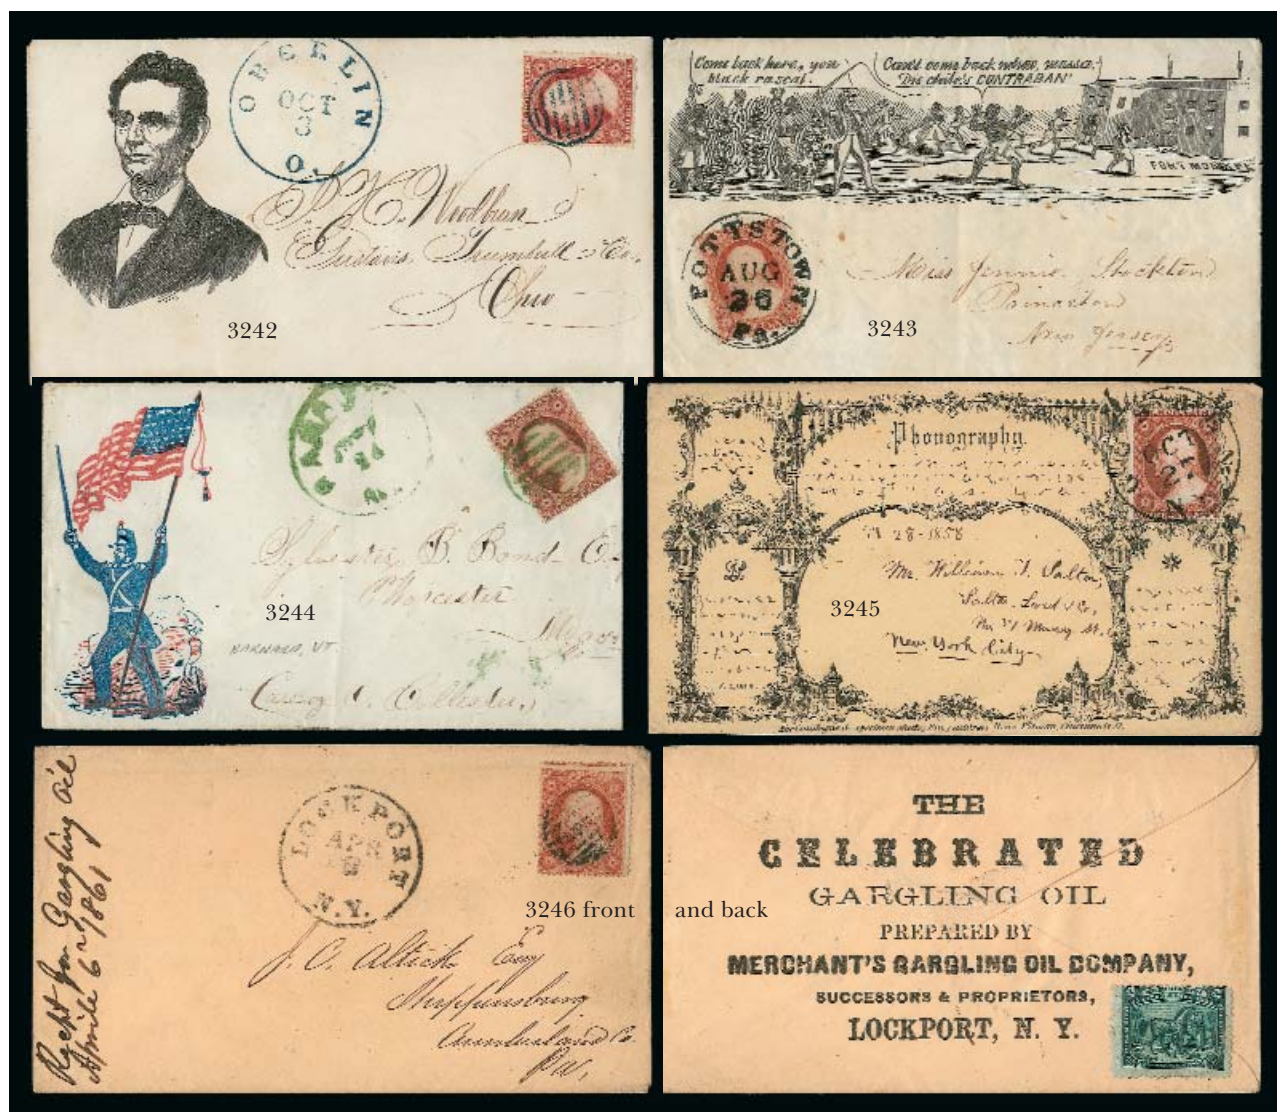 OBERLIN
OCT
3
O.
S. H. Woodburn
Gustavus Trumbull Co.
Ohio
3242
Come back here, you
black rascal.
Can't come back nohow, massa,
Dis chile's CONTRABAN'
FORT MONROE
POTTSTOWN
AUG
26
Pa.
Miss Jennie Stockton
Princeton
New Jersey
3243
14
Sylvester B. Bond
Worcester
Mass
3244
BARNARD, VT.
Phonography.
OCT
28-1858
Mr. William
New York City
3245
Recpt for Gargling Oil
Aprile 6th 1861
LOCKPORT
APR
N.Y.
J. C. Altick Esq
Shippensburg
Cumberland Co.
Pa,
3246 front
and back
THE
CELEBRATED
GARGLING OIL
PREPARED BY
MERCHANT'S GARGLING OIL COMPANY,
SUCCESSORS & PROPRIETORS,
LOCKPORT, N. Y.